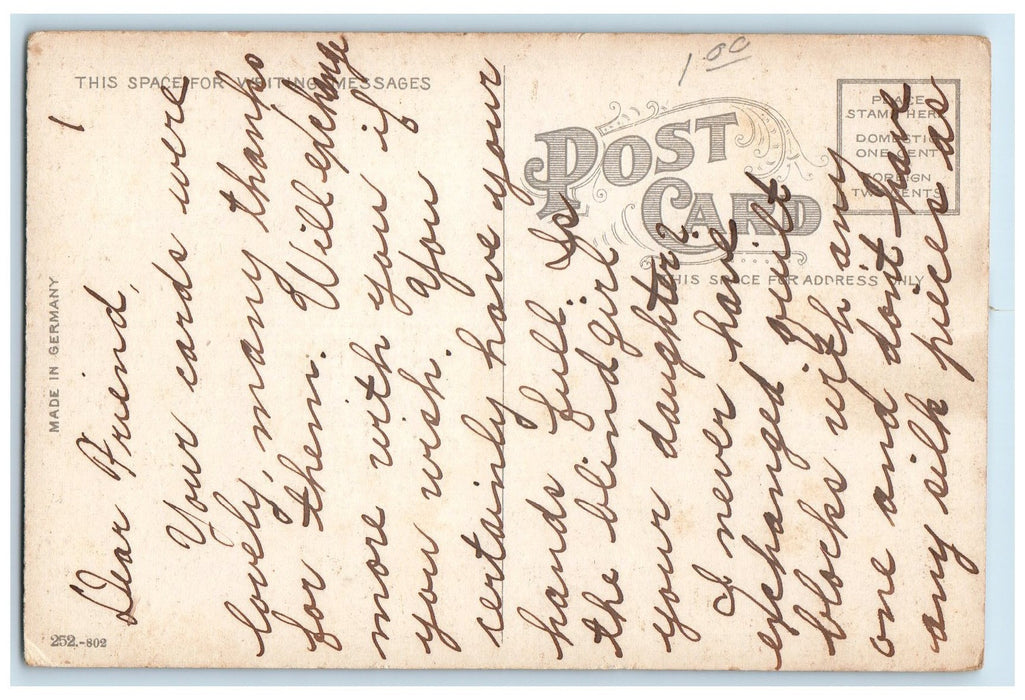 THIS SPACE FOR WRITING MESSAGES
1.00
POST CARD
PLACE
STAMP HERE
DOMESTIC
ONE CENT
FOREIGN
TWO CENTS
THIS SPACE FOR ADDRESS ONLY
MADE IN GERMANY
252.-802
1
Dear Friend,
Your cards were
lovely, many thanks
for them. Will exchange
more with you if
you wish. You
certainly have your
hands full. Is
the blind girl
your daughter?
I never have
exchanged quilt
blocks with any
one and don't have
any silk pieces as